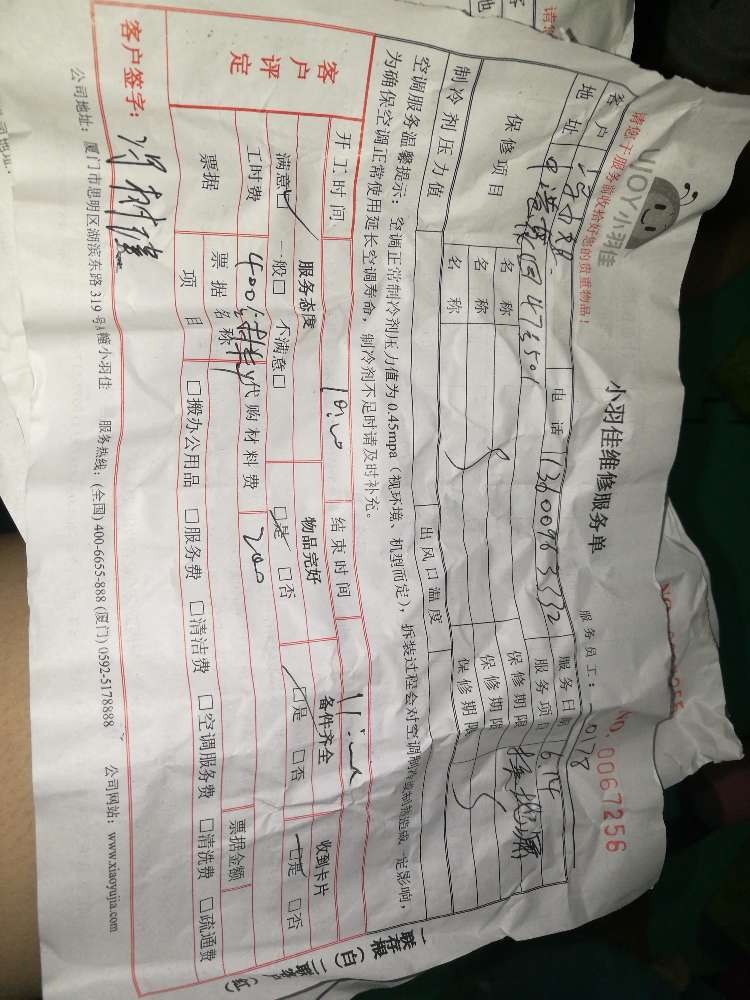 VJOY小羽佳
小羽佳维修服务单
NO. 0067256
请您于服务前收拾好您的贵重物品！
服务员工：
客户
电话
服务日期 6.14
地址 47号501
服务项目
保修项目
名称
保修期限
名称
保修期限
名称
保修期限
制冷剂压力值
出风口温度
空调服务温馨提示：空调正常制冷剂压力值为0.45mpa（视环境、机型而定），拆装过程会对空调制冷或制热造成一定影响，
为确保空调正常使用延长空调寿命，制冷剂不足时请及时补充。
开工时间
结束时间
客户评定
服务态度
物品完好
备件齐全
收到卡片
满意□ 一般□ 不满意□
□是 □否
□是 □否
□是 □否
工时费 400
代购材料费 200
票据
票据名称
票据金额
项目
□搬办公用品 □服务费 □清洁费 □空调服务费 □清洗费 □疏通费
客户签字：
公司地址：厦门市思明区湖滨东路319号A幢小羽佳 服务热线：(全国) 400-6655-888 (厦门) 0592-5178888 公司网站：www.xiaoyujia.com
一联存根（白）二联客户（红）